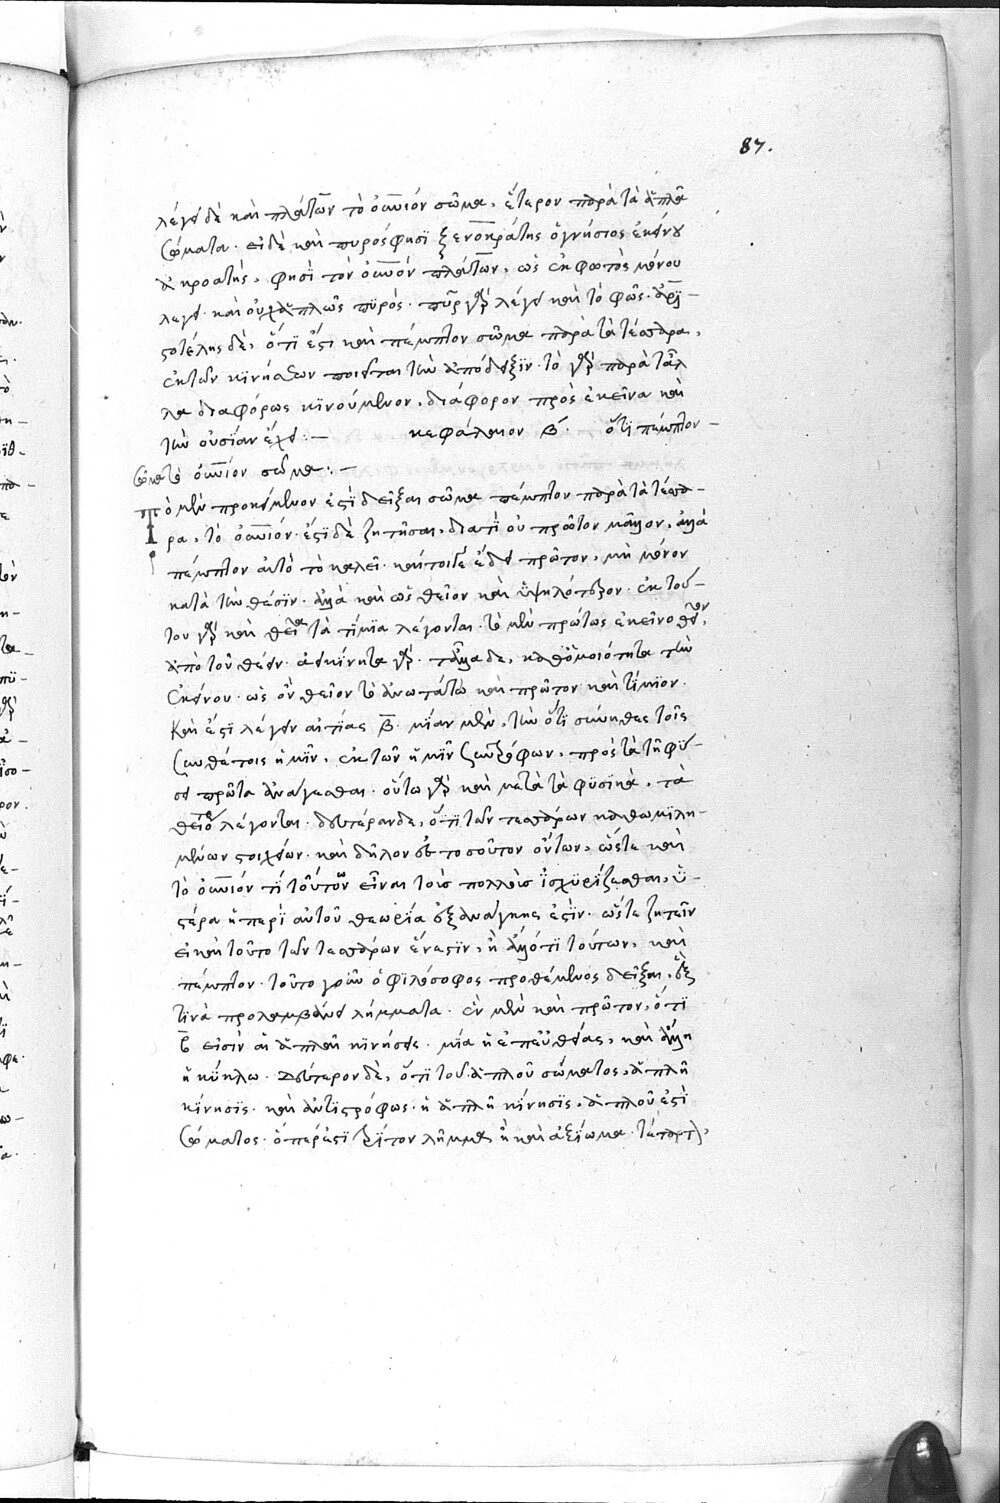 87.
λέγει δὲ καὶ πλάτων τὸ οὐνιόν σῶμα, ἕτερον παρὰ τὰ ἁπλᾶ
σώματα. εἰ δὲ καὶ πυρός φησὶ ξενοκράτης ὁ γνήσιος ἐκείνου
ἀκροατής, φησὶ τὸν οὐνόν πλάτων, ὡς ἐκ φωτὸς μόνου
λέγει. καὶ οὐχ ἁπλῶς πυρός. πῦρ γὰρ λέγει καὶ τὸ φῶς. ἀρι-
στοτέλης δὲ, ὅτι ἔστι καὶ πέμπτον σῶμα παρὰ τὰ τέσσαρα,
ἐκ τῶν κινήσεων ποιεῖται τὴν ἀπόδειξιν. τὸ γὰρ παρὰ τἆλ
λα διαφόρως κινούμενον, διάφορον πρὸς ἐκεῖνα καὶ
τὴν οὐσίαν ἔχει :— κεφάλαιον β. ὅτι πέμπτον
σῶμα τὸ οὐνιόν σῶμα :—
Τὸ μὲν προκείμενον ἐστὶ δεῖξαι σῶμα πέμπτον παρὰ τὰ τέσσα-
ρα, τὸ οὐνιόν. ἔστι δὲ ζητῆσαι, διατί οὐ πρῶτον μᾶλλον, ἀλλὰ
πέμπτον αὐτὸ τὸ καλεῖ. καίτοι γε ἔδει πρῶτον, μὴ μόνον
κατὰ τὴν θέσιν. ἀλλὰ καὶ ὡς θεῖον καὶ ὑψηλότερον. ἐκ τού-
του γὰρ καὶ θεῖα τὰ τίμια λέγονται. τὸ μὲν πρώτως ἐκεῖνο θεῖον,
ἀπὸ τοῦ θέειν. ἀεικίνητα γάρ. τἆλλα δε, καθ' ὁμοιότητα τὴν
ἐκείνου. ὡς οὖν θεῖον τὸ ἀνωτάτω καὶ πρῶτον καὶ τίμιον.
Καὶ ἔστι λέγειν αἰτίας β. μίαν μὲν, τὴν ὅτι σύνηθες τοῖς
συνθέτοις ἡμῖν, ἐκ τῶν ἡμῖν συντρόφων, πρὸς τὰ τῇ φύ-
σει πρῶτα ἀνάγεσθαι. οὕτω γὰρ καὶ μετὰ τὰ φυσικὰ, τὰ
θεῖα λέγονται. δευτέραν δε, ὅτι τῶν τεσσάρων καθωμιλη-
μένων στοιχείων. καὶ δῆλον ὅτι τοσοῦτον ὄντων, ὥστε καὶ
τὸ οὐνιόν τὶ τούτων εἶναι τοὺς πολλοὺς ἰσχυρίζεσθαι, ὑ-
στέρα ἡ περὶ αὐτοῦ θεωρία ἐξ ἀνάγκης ἐστίν. ὥστε ζητεῖν
εἰ καὶ τοῦτο τῶν τεσσάρων ἕν ἐστιν, ἢ ἄλλό τι τούτων, καὶ
πέμπτον. τοῦτο γοῦν ὁ φιλόσοφος προθέμενος δεῖξαι, ἓξ
τινὰ προλαμβάνει λήμματα. ἓν μὲν καὶ πρῶτον, ὅτι
β εἰσὶν αἱ ἁπλαῖ κινήσεις. μία ἡ ἐπ' εὐθείας, καὶ ἄλλη
ἡ κύκλω. δεύτερον δὲ, ὅτι τοῦ ἁπλοῦ σώματος, ἁπλῆ
κίνησις. καὶ ἀντιστρόφως. ἡ ἁπλῆ κίνησις, ἁπλοῦ ἐστὶ
σώματος. ὅπερ ἐστὶ τρίτον λῆμμα ἢ καὶ ἀξίωμα. τέταρτ(ον),